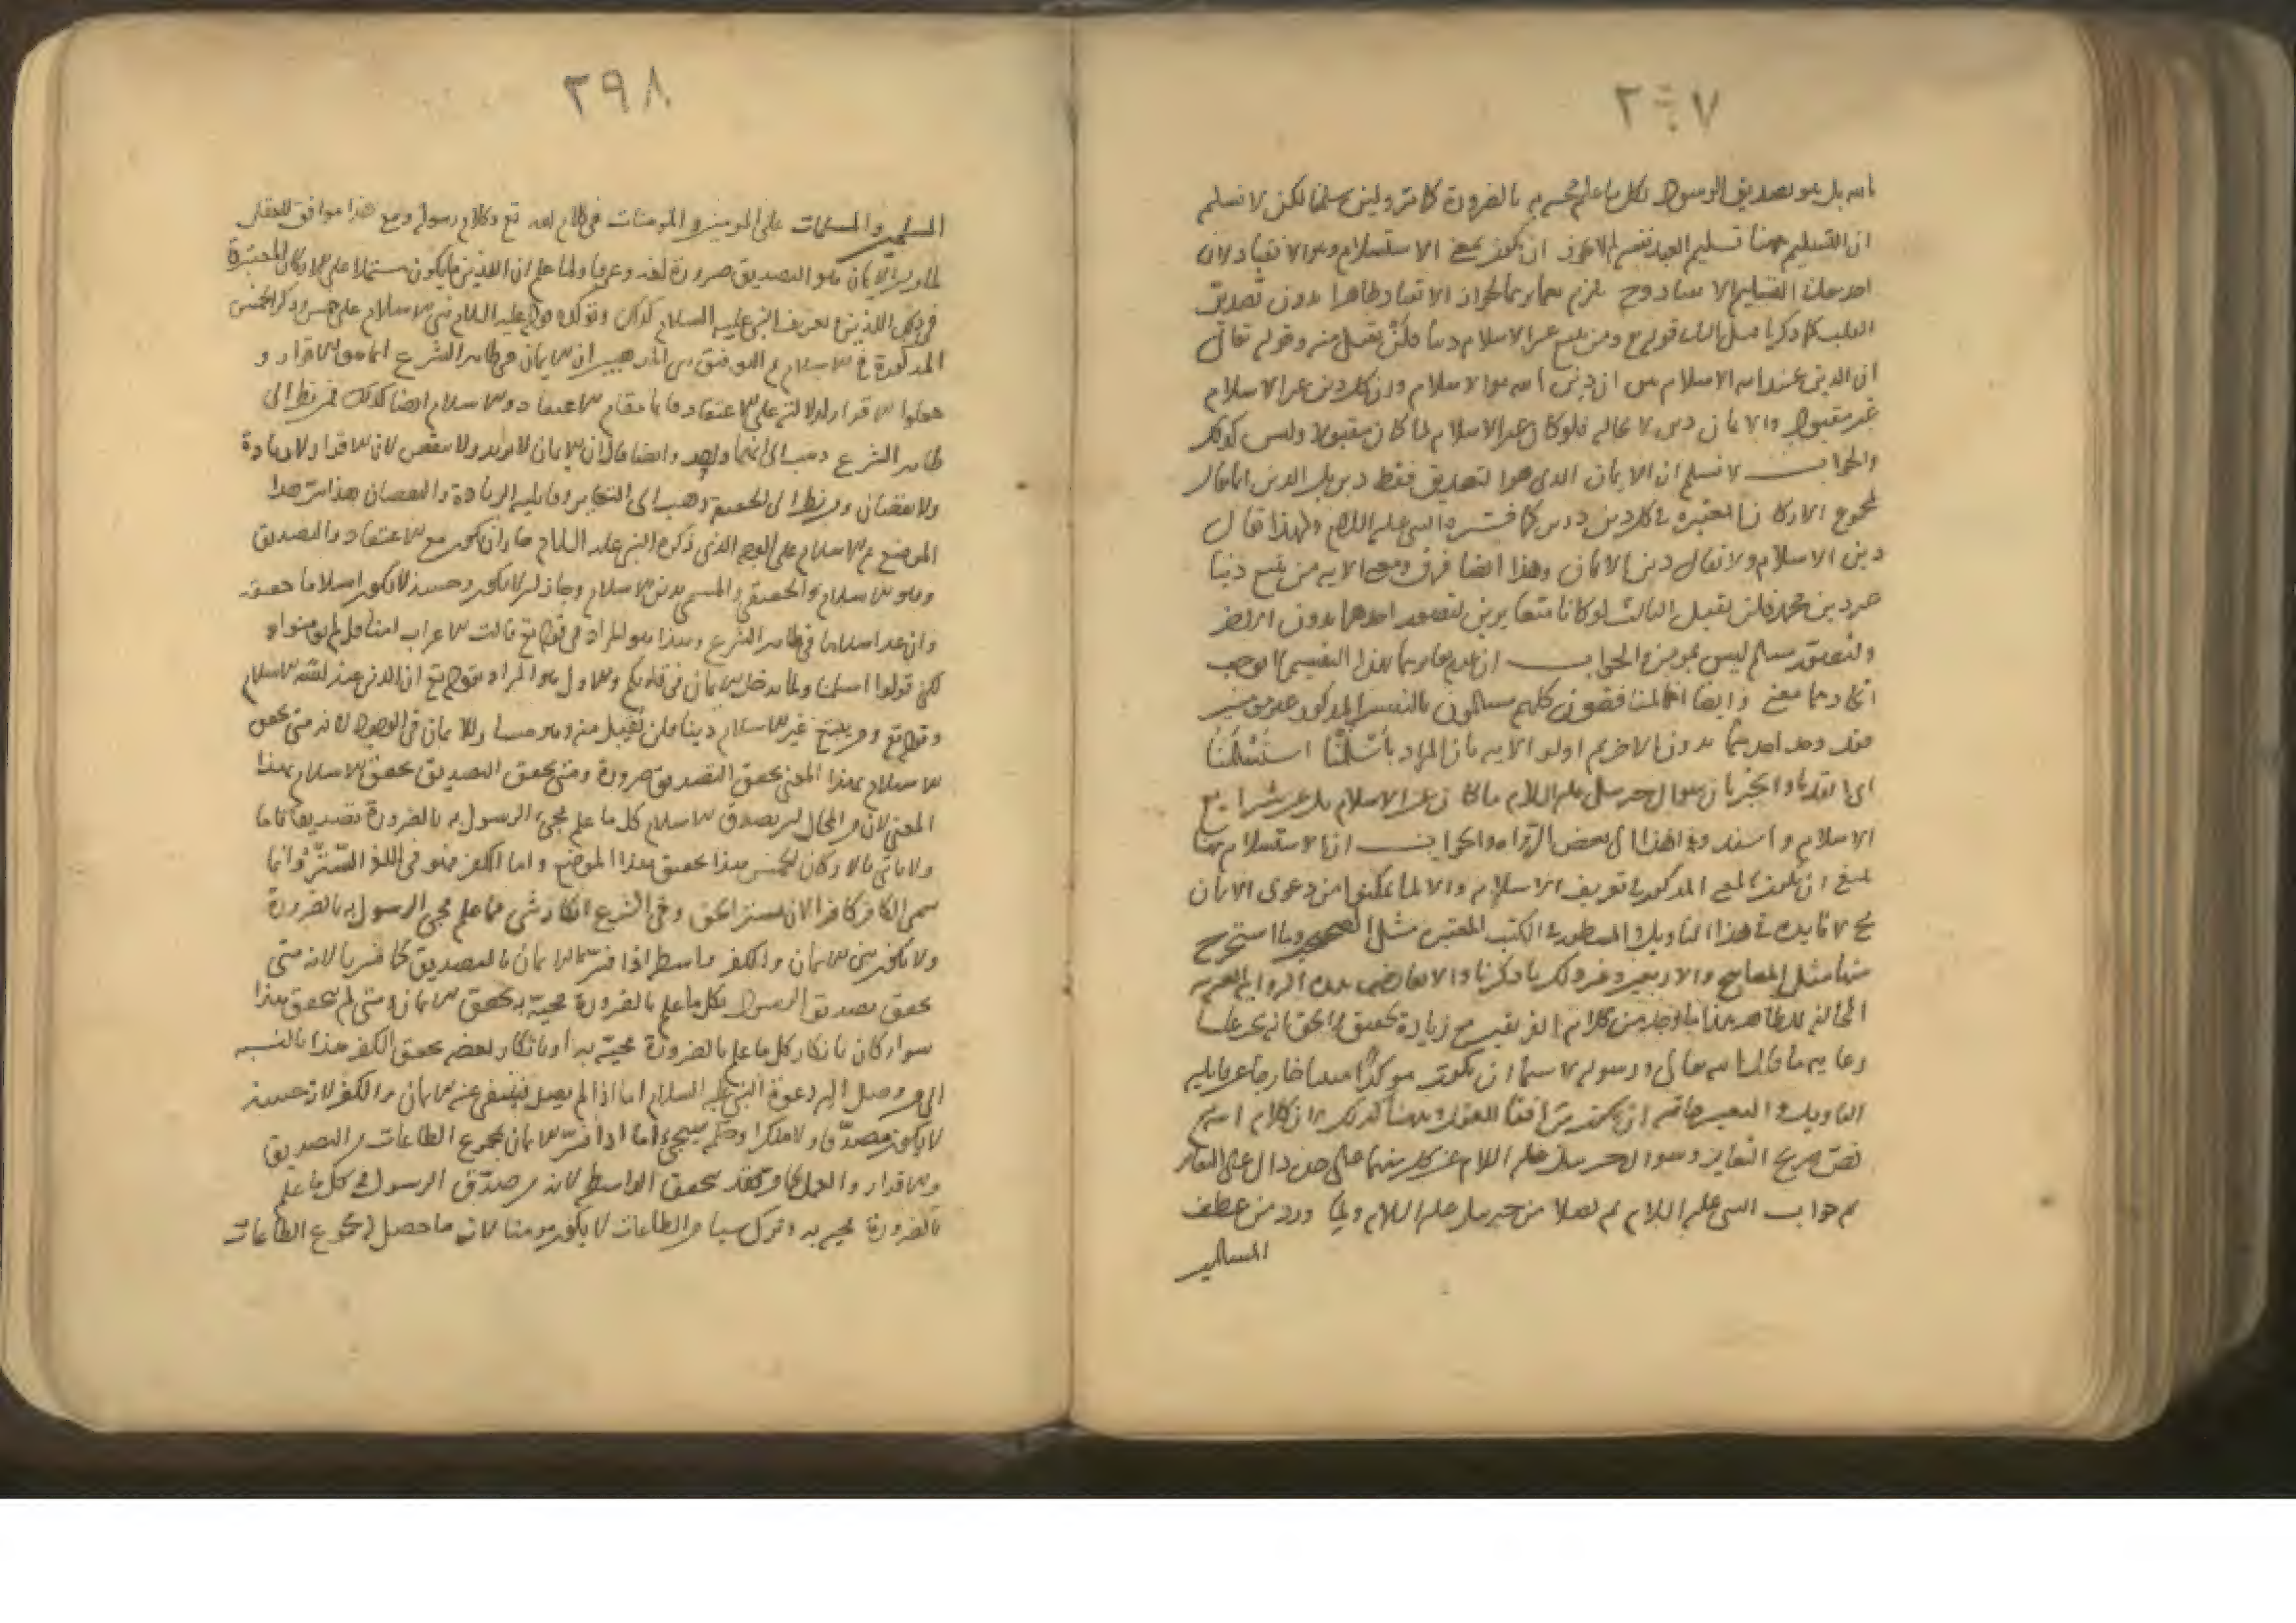 ٢٩٧
بالله بل هو تصديق الرسول بكل ما علم مجيئه به بالضرورة كما مر ولئن سلمنا لكن لا نسلم
ان التسليم ههنا تسليم العبد نفسه لم لا يجوز ان يكون بمعنى الاستسلام وهو الانقياد لان
احد معاني التسليم الانقياد وح يلزم تغايرهما لجواز الانقياد ظاهرا بدون تصديق
القلب كما ذكرنا قوله تع ومن يبتغ غير الاسلام دينا فلن يقبل منه وقوله تعالى
ان الدين عند الله الاسلام بين ان دين الله هو الاسلام وان كل دين غير الاسلام
غير مقبول والايمان دين لا محالة فلو كان غير الاسلام لما كان مقبولا وليس كذلك
والجواب لا نسلم ان الايمان الذي هو التصديق فقط دين بل الدين انما يقال
لمجموع الاركان المعتبرة في كل دين كما فسره النبي عليه السلام ولهذا يقال
دين الاسلام ولا يقال دين الايمان وهذا ايضا فرق ومعنى الاية من يبتغ دينا
غير دين محمد فلن يقبل الثالث لو كانا متغايرين لتصور احدهما بدون الاخر
ولتصور مسلم ليس بمومن والجواب ان عدم تغايرهما بهذا التفسير لا يوجب
اتحادهما معنى وايضا المنافقون كلهم مسلمون بالتفسير المذكور غير مومنين
فقد وجد احدهما بدون الاخر ثم اولوا الاية بان المراد باسلمنا استسلمنا
اي انقدنا والخبر بان سوال جبريل عليه السلام ما كان عن الاسلام بل عن شرايع
الاسلام واسندوا هذا الى بعض الرواة والجواب ان الاستسلام ههنا
ينبغي ان يكون المعنى المذكور في تعريف الاسلام والا لما تمكنوا من دعوى الايمان
ح لا فايدة في هذا التاويل المسطور في الكتب المعتبرة مثل الصحيحين وما استخرج
منها مثل المصابيح والاربعين وغير ذلك ما ذكرنا والا يعارض هذه الرواية الغريبة
المخالفة للظاهر هذا ما وجد من كلام الفريقين مع زيادة تحقيق والحق انه يجب علينا
رعاية ما قال الله تعالى ورسوله لا سيما ان يكون موكدا
التاويل
نص صريح التغاير وسوال جبريل عليه السلام عن كل منهما على حدة دال على التغاير
ثم جواب النبي عليه السلام ثم ورد من عطف
المسلمين
٢٩٨
المسلمين والمسلمات على المومنين والمومنات في كلام الله تع وكلام رسوله ومع هذا موافق للعقل
في ذلك الدين في تعريف النبي عليه السلام كذلك وتوكده قوله عليه السلام بني الاسلام على خمس وذكر الخمس
المذكورة في الاسلام ثم التوفيق بين المذهبين ان الايمان في ظاهر الشرع انما هو الاقرار و
جعلوا الاقرار لدلالته على الاعتقاد قايما مقام الاعتقاد والاسلام ايضا كذلك فمن نظر الى
ظاهر الشرع ذهب الى انهما واحد وايضا قال ان الايمان لا يزيد ولا ينقص لان الاقرار لا زيادة
ولا نقصان ومن نظر الى الحقيقة ذهب الى التغاير وقابلية الزيادة والنقصان هذا
الموضع ثم الاسلام على الوجه الذي ذكره النبي عليه السلام جاز ان يكون مع الاعتقاد والتصديق
وهو الاسلام الحقيقي والمسمى بدين الاسلام وجاز ان لا يكون وحينئذ لا يكون اسلاما حقيقة
وان عد اسلاما في ظاهر الشرع وهذا هو المراد في قوله تع قالت الاعراب امنا قل لم تومنوا و
لكن قولوا اسلمنا ولما يدخل الايمان في قلوبكم والاول هو المراد بقوله تع ان الدين عند الله الاسلام
وقوله تع ومن يبتغ غير الاسلام دينا فلن يقبل منه وهو مساو للايمان في الوجود لانه متى تحقق
الاسلام بهذا المعنى تحقق التصديق ضرورة ومتى تحقق التصديق تحقق الاسلام بهذا
المعنى لان من المحال ان يصدق الاسلام كل ما علم مجيء الرسول به بالضرورة تصديقا تاما
ولا ياتي بالاركان الخمس هذا تحقيق هذا الموضع واما الكفر فهو في اللغة الستر وانما
سمي الكافر كافرا لانه يستر الحق وفي الشرع انكار شيء مما علم مجيء الرسول به بالضرورة
ولا يكون بين الايمان والكفر واسطة اذا فسر الايمان بالتصديق كما فسرنا لانه متى
تحقق تصديق الرسول بكل ما علم بالضرورة مجيئه به تحقق الايمان ومتى لم يتحقق هذا
سواء كان بانكار كل ما علم بالضرورة مجيئه به او بانكار بعضه تحقق الكفر هذا بالنسبة
الى من وصل اليه دعوة النبي عليه السلام اما اذا لم يصل فينتفي عنه الايمان والكفر لانه حينئذ
لا يكون مصدقا ولا منكرا وحكمه سيجيء اما اذا فسر الايمان بمجموع الطاعات من التصديق
والاقرار والعمل فقد تحقق الواسطة لان من صدق الرسول في كل ما علم
بالضرورة مجيئه به وترك شيئا من الطاعات لا يكون مومنا لانه ما حصل له مجموع الطاعات